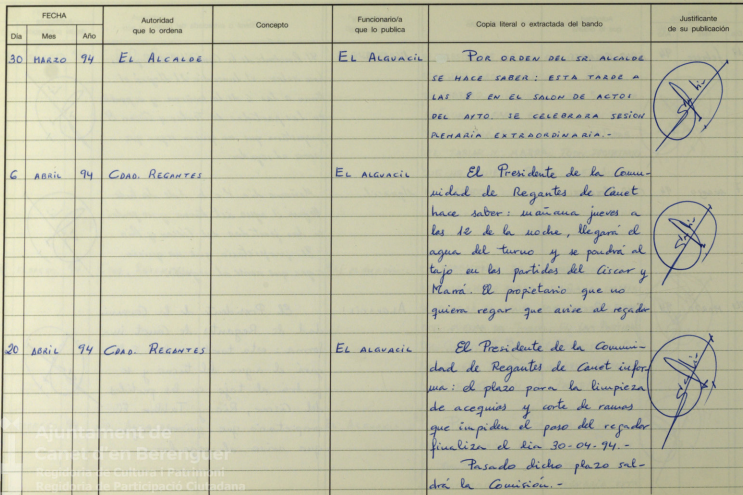 FECHA
Día Mes Año
Autoridad
que lo ordena
Concepto
Funcionario/a
que lo publica
Copia literal o extractada del bando
Justificante
de su publicación
30 MARZO 94 EL ALCALDE EL ALGUACIL POR ORDEN DEL SR. ALCALDE
SE HACE SABER: ESTA TARDE A
LAS 8 EN EL SALON DE ACTOS
DEL AYTO. SE CELEBRARA SESION
PLENARIA EXTRAORDINARIA.-
6 ABRIL 94 CDAD. REGANTES EL ALGUACIL El Presidente de la Comu-
nidad de Regantes de Canet
hace saber: mañana jueves a
las 12 de la noche, llegará el
agua del turno y se pondrá al
tajo en las partidas del Ciscar y
Marrá. El propietario que no
quiera regar que avise al regador
20 ABRIL 94 CDAD. REGANTES EL ALGUACIL El Presidente de la Comuni-
dad de Regantes de Canet infor-
ma: el plazo para la limpieza
de acequias y corte de ramas
que impiden el paso del regador
finaliza el dia 30-04-94.-
Pasado dicho plazo sal-
drá la Comisión.-
Ajuntament de
Canet d'en Berenguer
Regidoria de Cultura i Patrimoni
Regidoria de Participació Ciutadana